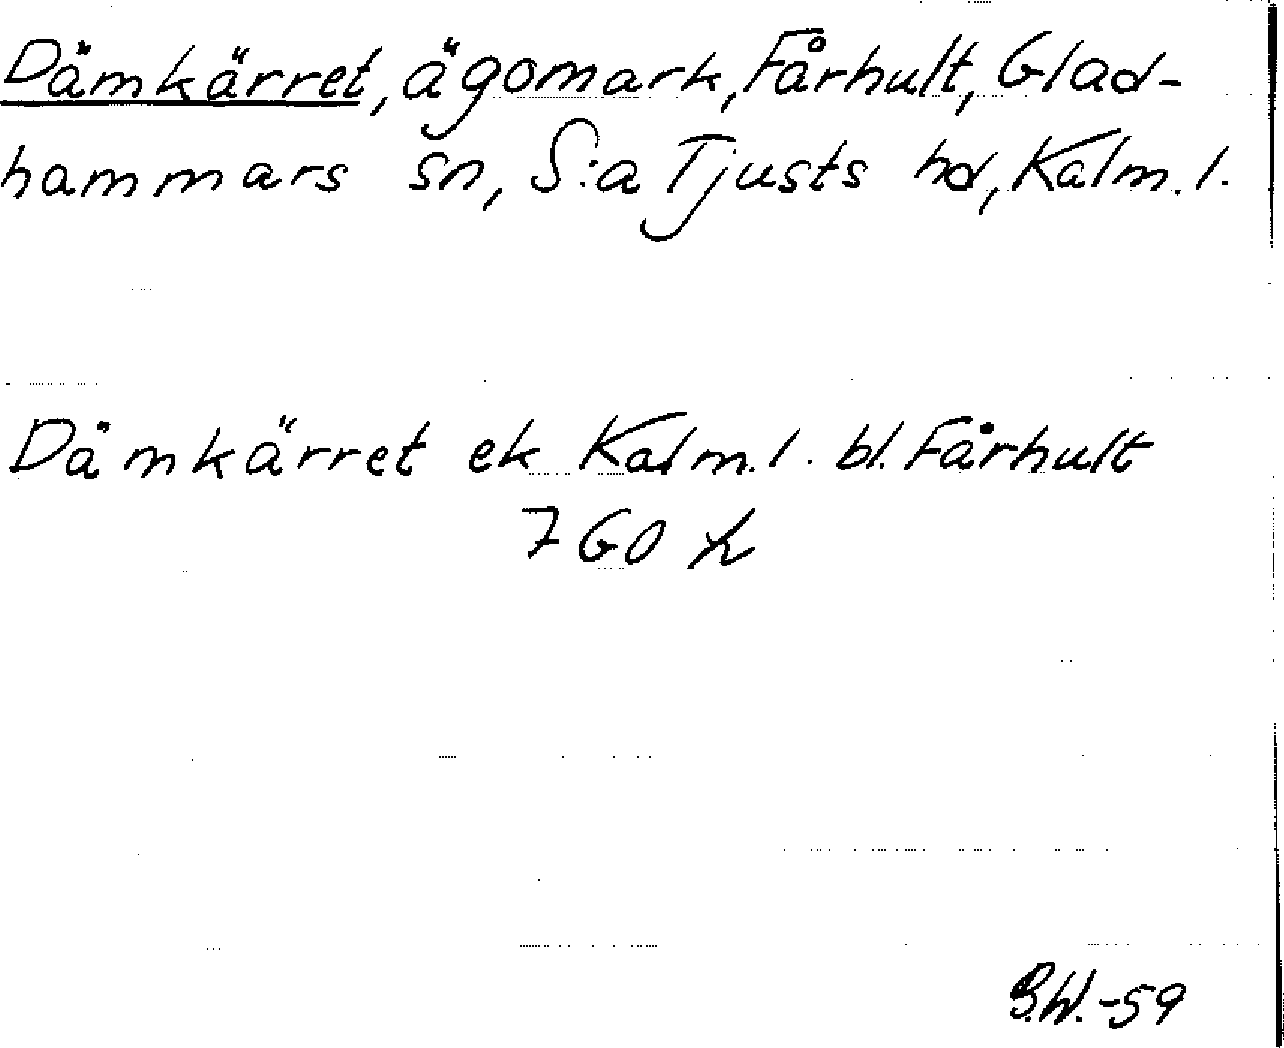 Dämkärret, ägomark, Fårhult, Glad-
hammars sn, S:a Tjusts hd, Kalm. l.
Dämkärret ek Kalm. l. bl. Fårhult
7 G0
B.W. -59